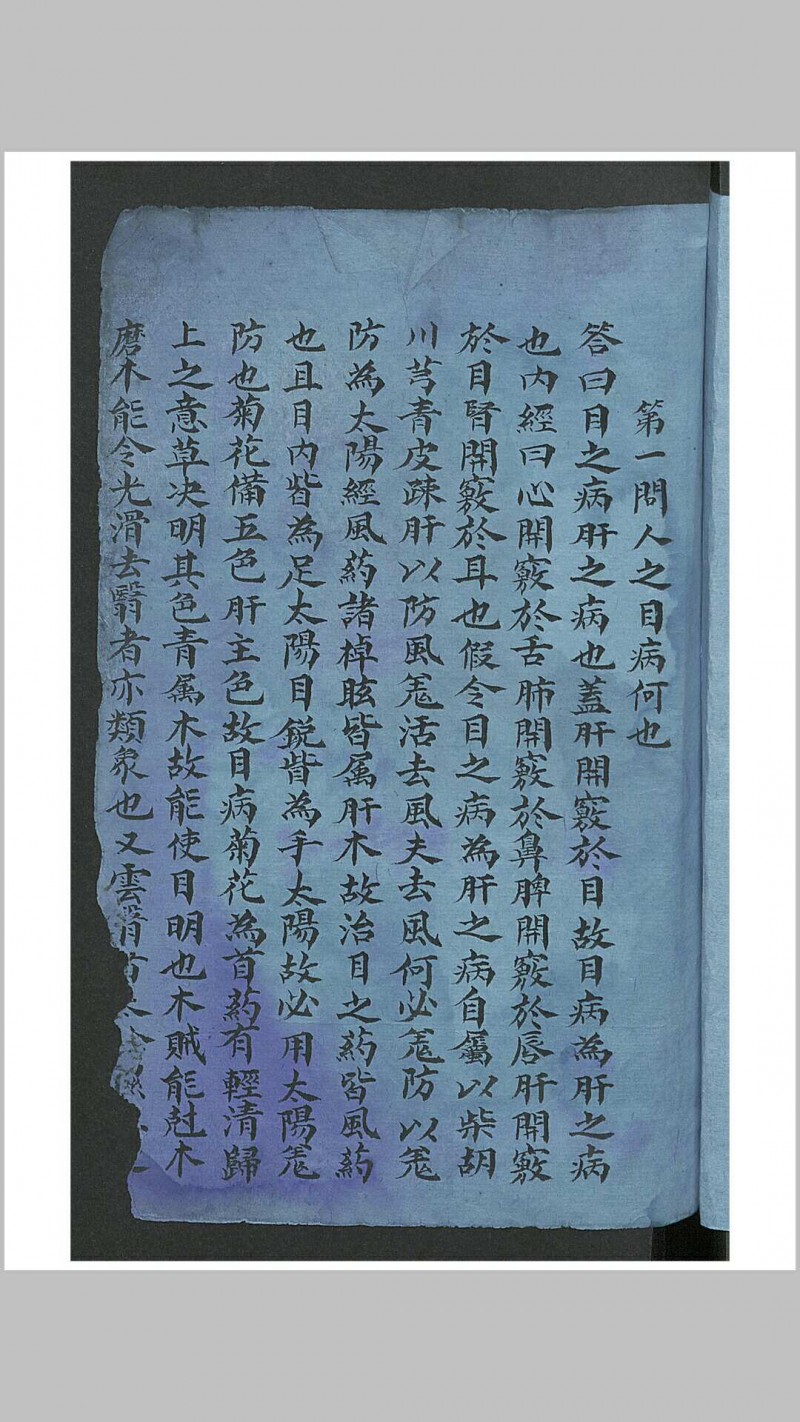 第一問人之目病何也
答曰目之病肝之病也蓋肝開竅於目故目病為肝之病
也內經曰心開竅於舌肺開竅於鼻脾開竅於唇肝開竅
於目腎開竅於耳也假令目之病為肝之病自屬以柴胡
川芎青皮疎肝以防風羗活去風夫去風何必羗防以羗
防為太陽經風药諸掉眩皆属肝木故治目之药皆風药
也且目内眥為足太陽目銳眥為手太陽故必用太陽羗
防也菊花備五色肝主色故目病菊花為首药有輕清歸
上之意草决明其色青属木故能使目明也木賊能尅木
磨木能令光滑去翳者亦類象也又雲翳